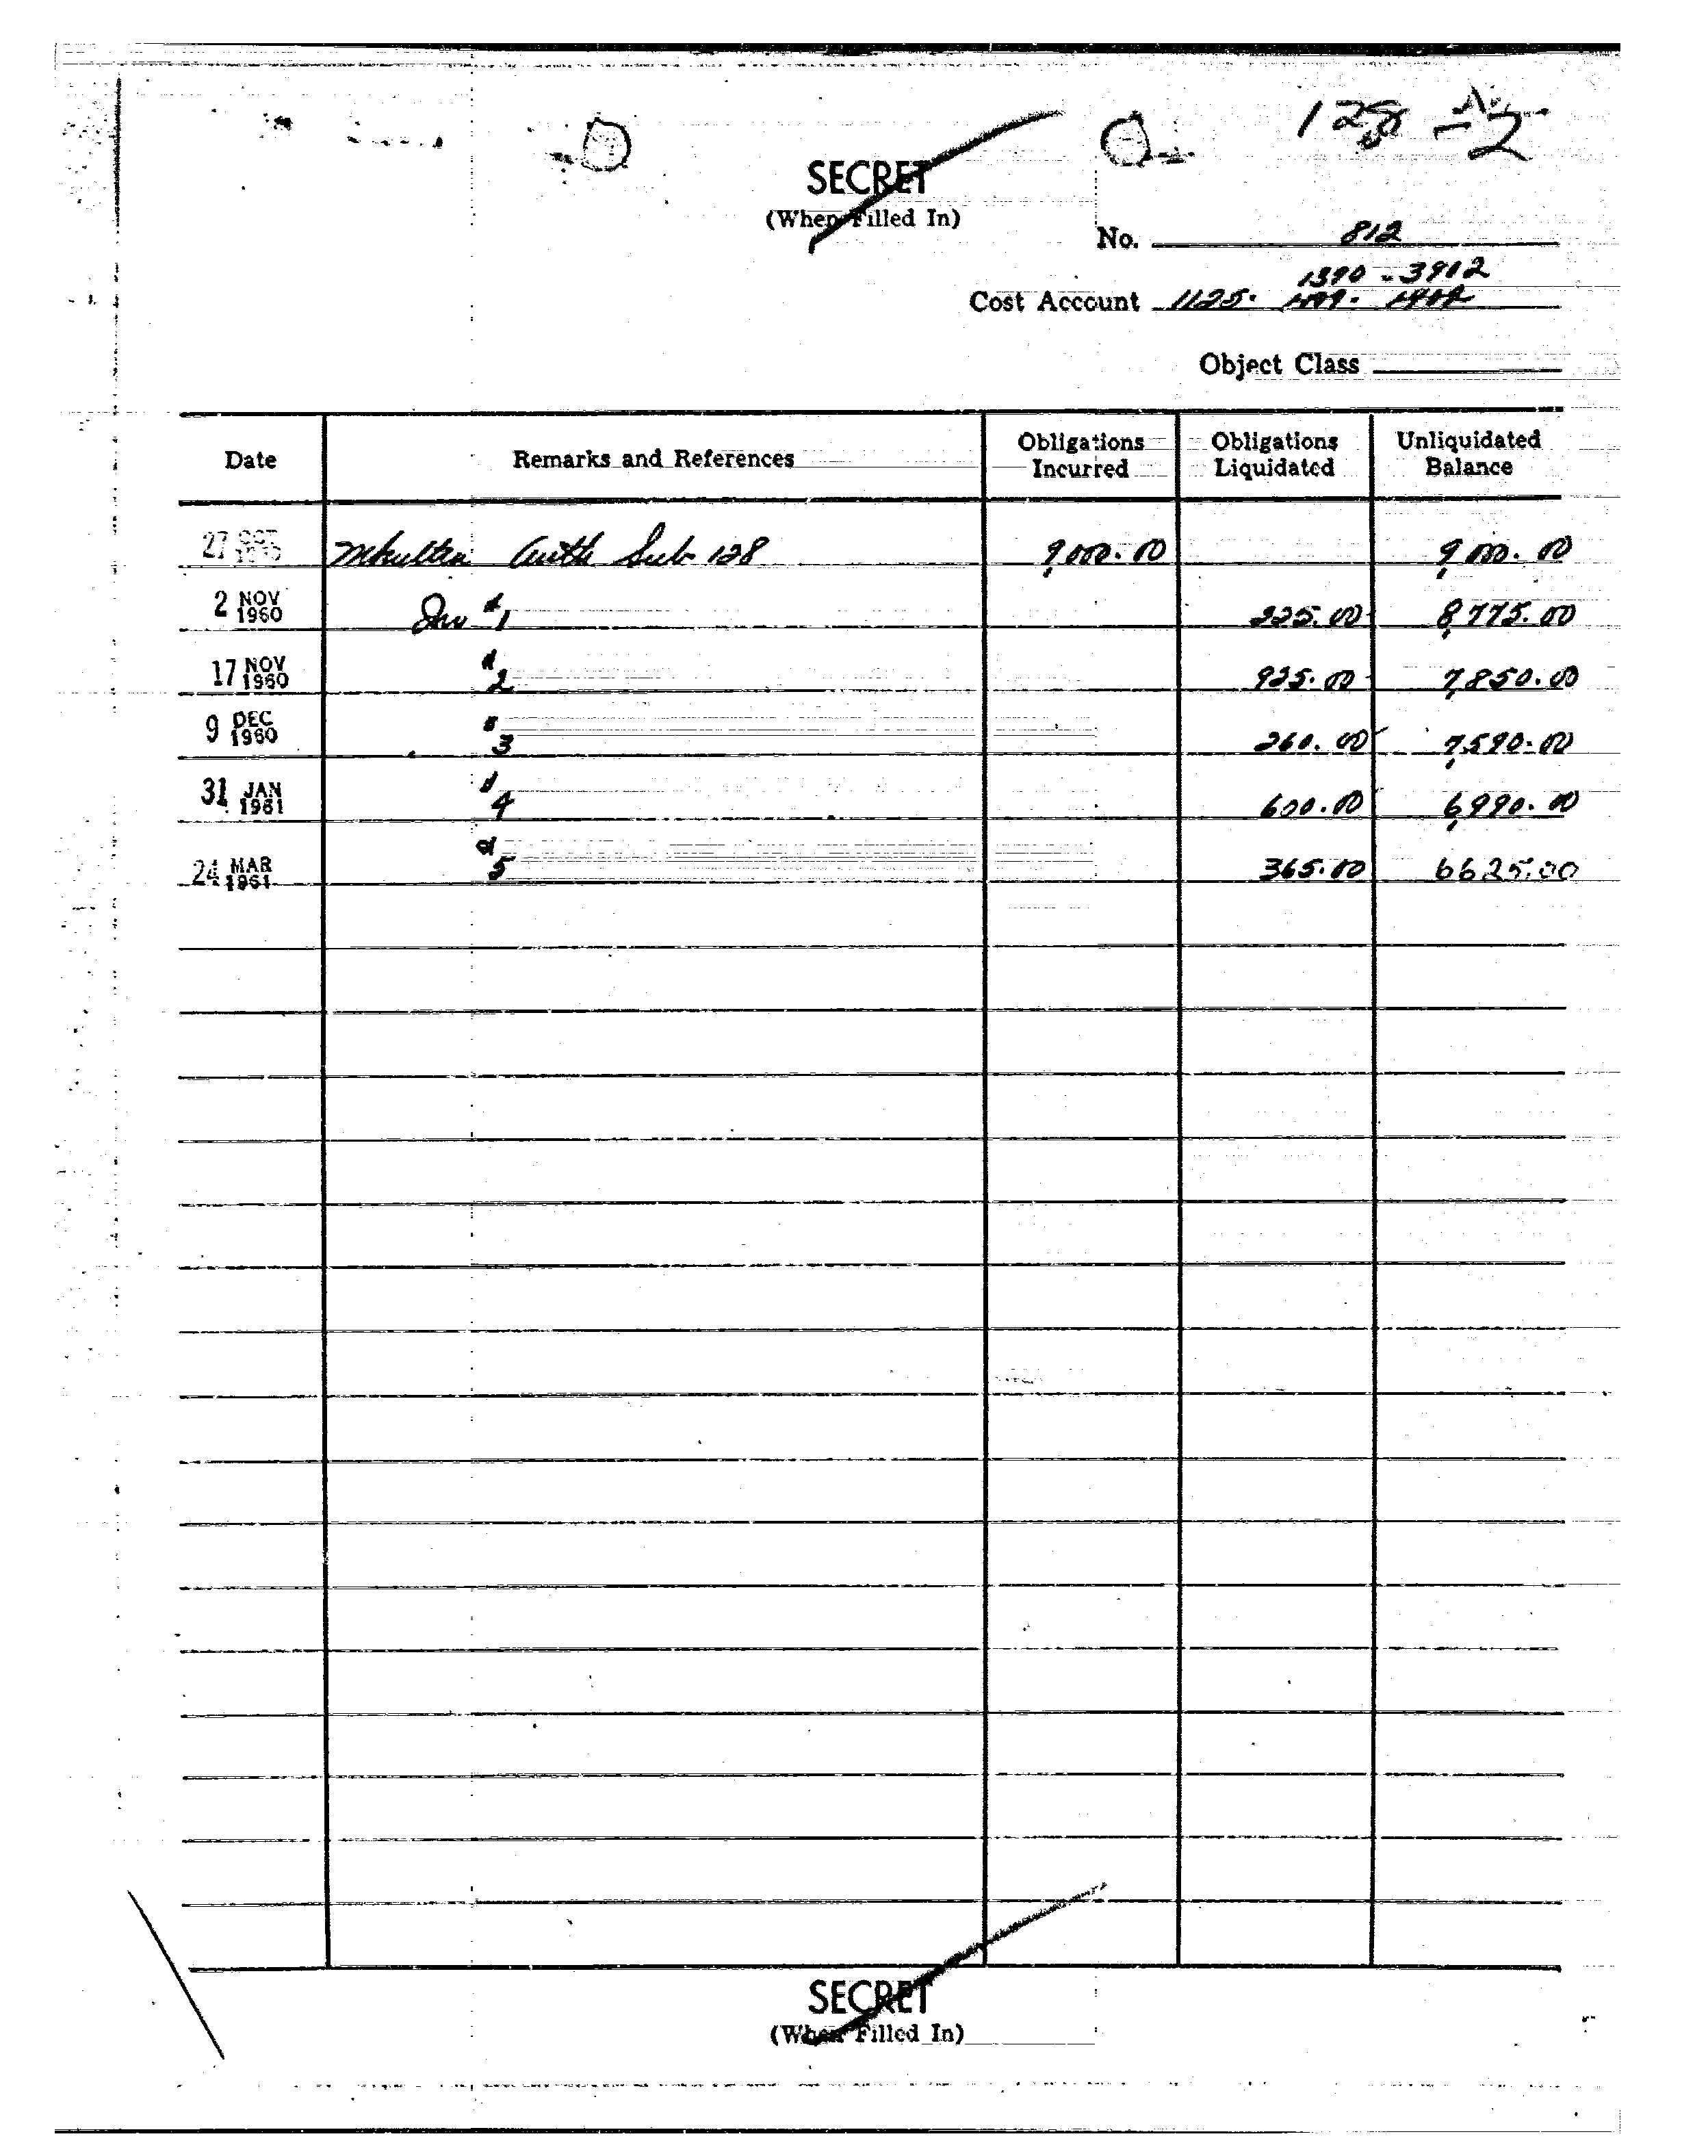 128 -2
SECRET
(When Filled In)
No. 812
1390 - 3902
Cost Account 1125.
Object Class
Date Remarks and References Obligations Incurred Obligations Liquidated Unliquidated Balance
27 OCT 1960 Mkultra Auth Sub 128 9,000.00 9,000.00
2 NOV 1960 Inv #1 225.00 8,775.00
17 NOV 1960 " 2 925.00 7,850.00
9 DEC 1960 " 3 260.00 7,590.00
31 JAN 1961 " 4 600.00 6,990.00
24 MAR 1961 " 5 365.00 6625.00
SECRET
(When Filled In)